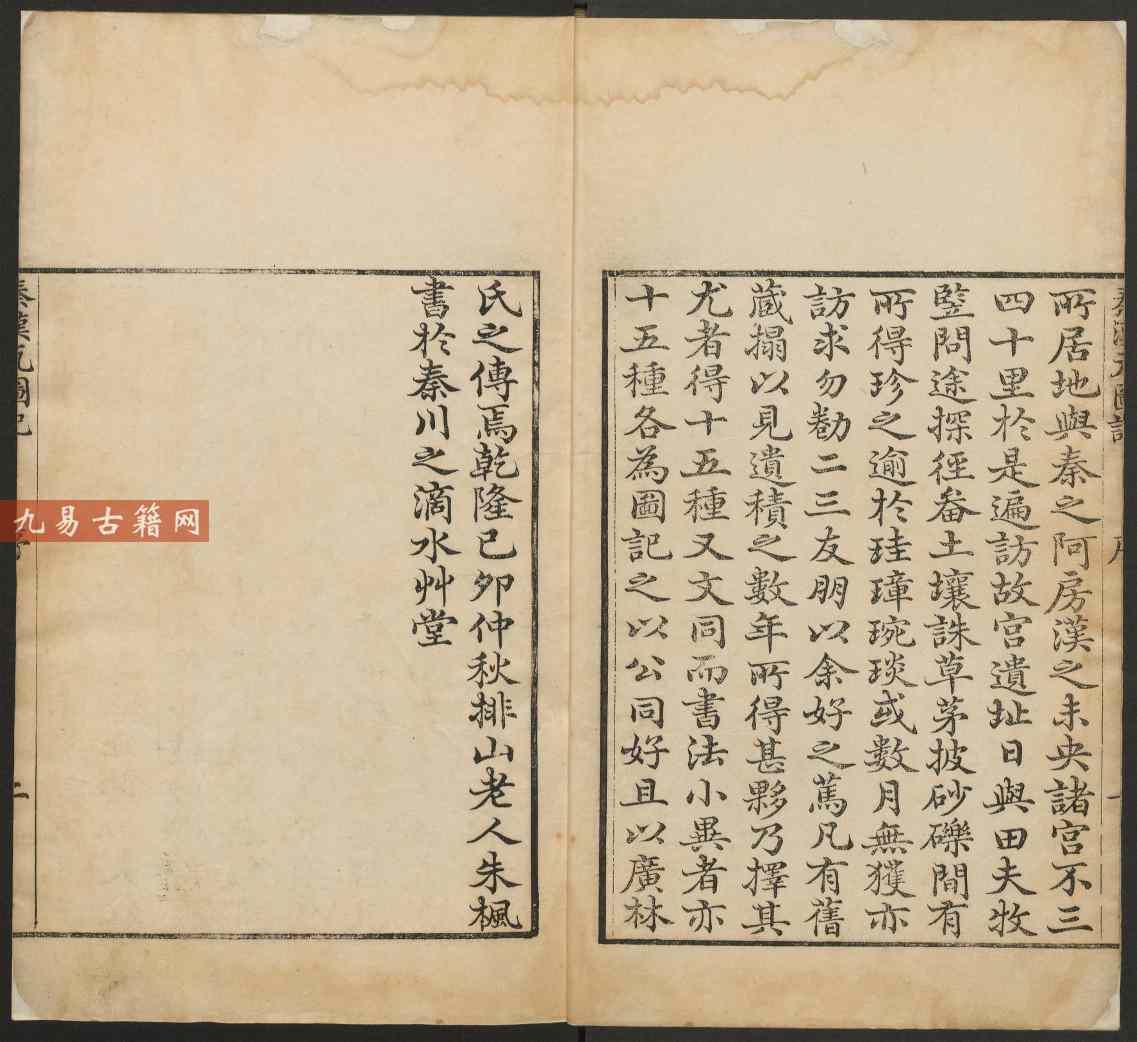 所居地與秦之阿房漢之未央諸宫不三
四十里於是遍訪故宫遺址日與田夫牧
竪問途探徑畚土壤誅草茅披砂礫間有
所得珍之逾於珪璋琬琰或數月無獲亦
訪求勿勌二三友朋以余好之篤凡有舊
藏搨以見遺積之數年所得甚夥乃擇其
尤者得十五種又文同而書法小異者亦
十五種各為圖記之以公同好且以廣林
氏之傳焉乾隆己夘仲秋排山老人朱楓
書於秦川之滴水艸堂
秦漢瓦圖記
二
九易古籍网